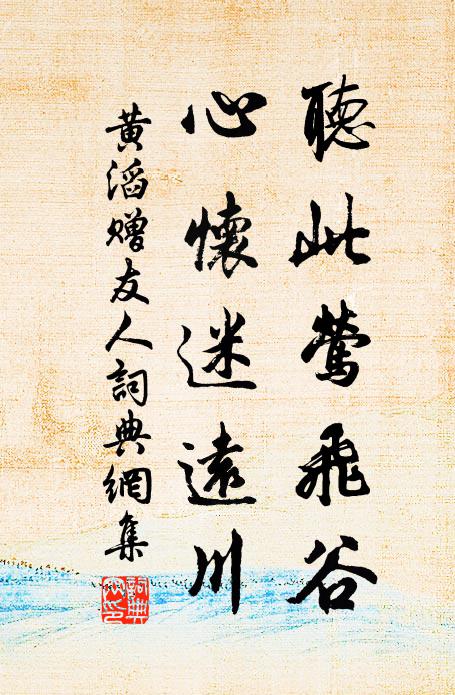 聽此鶯飛谷
心懷迷遠川
黃滔贈友人詞典網集